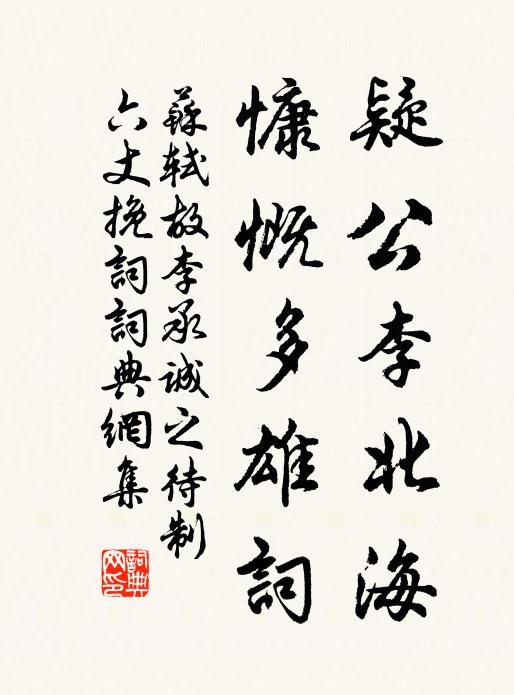 疑公李北海
慷慨多雄詞
蘇軾故李承誠之待制
六丈挽詞詞典網集
詞典網印